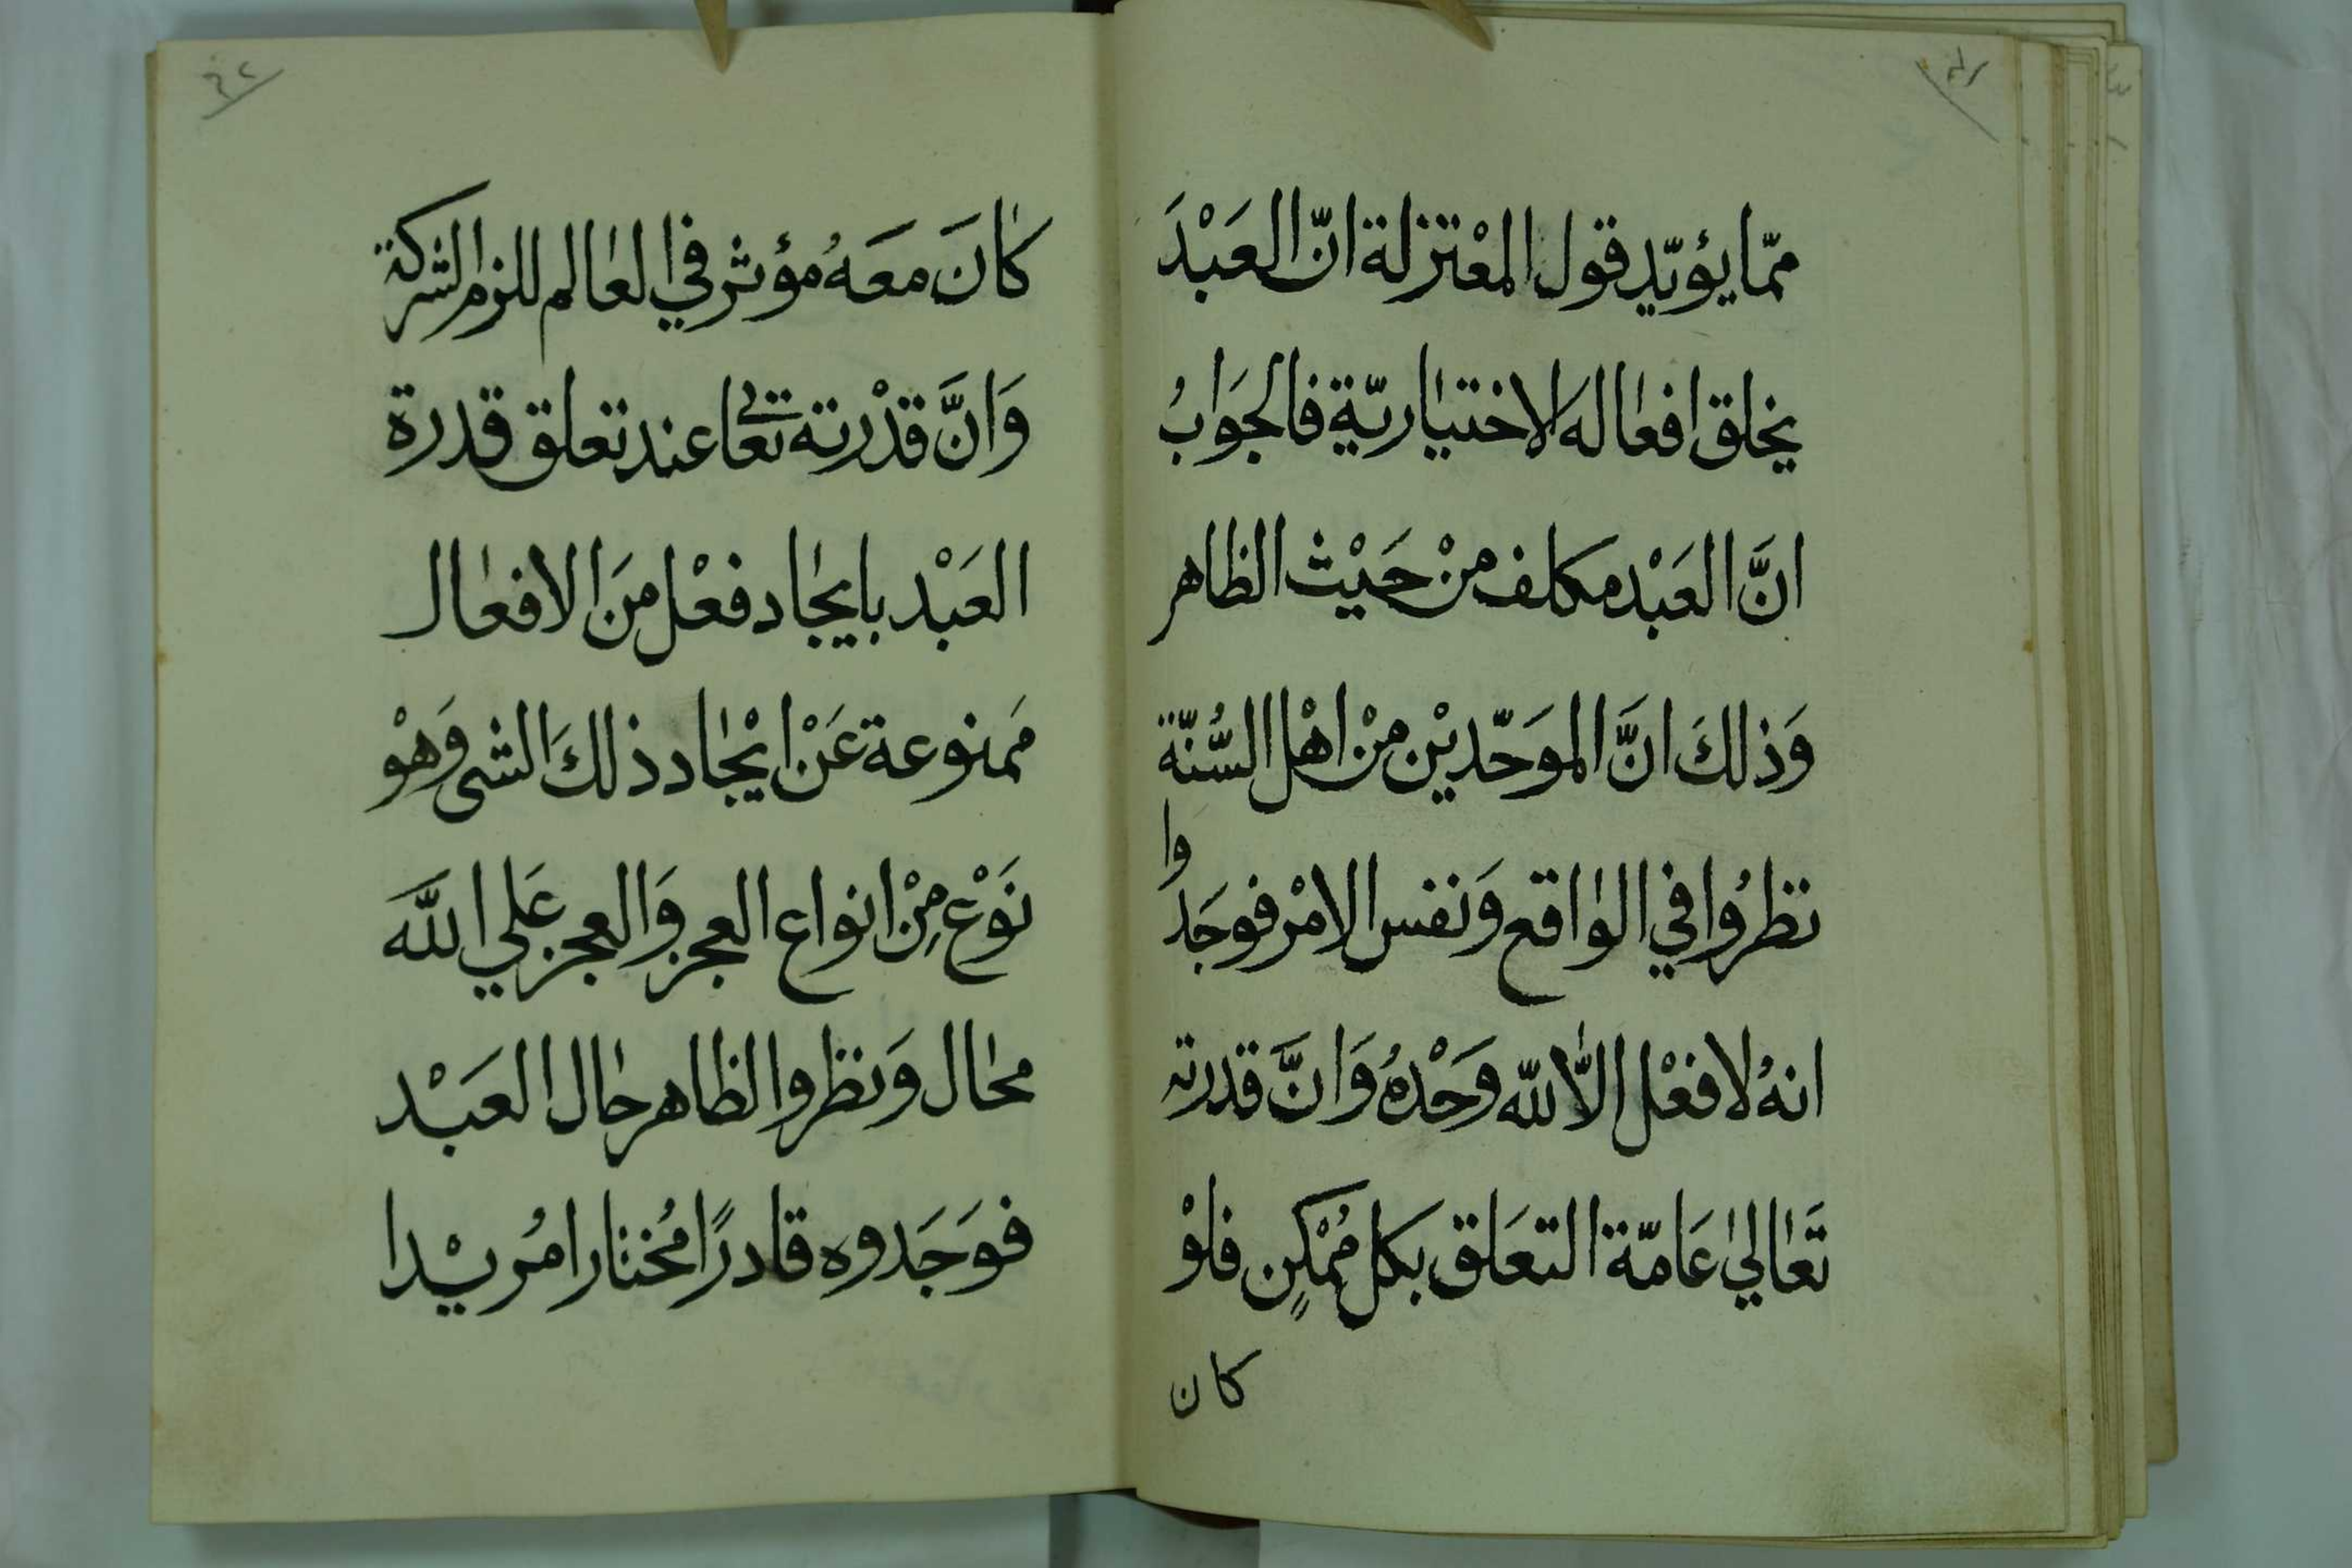 ممّا يؤيّد قول المعْتزلة انّ العَبْدَ
يخلق افعاله الاختياريّة فالجوَابُ
انَّ العَبْد مكلف منْ حَيْث الظاهر
وَذلكَ انَّ الموَحّديْن منْ اهْل السُّنّة
نظرُوا في الواقع وَنفس الامْر فوجَدوا
انهُ لا فعْل الّا لله وَحْدهُ وَانَّ قدرته
تَعالىٰ عَامّة التعَلق بكل مُمْكنٍ فلوْ
كان
كانَ معَهُ مؤثر في العالم للزم الشركة
وَانَّ قدْرته تعالى عند تعلق قدرة
العَبْد بايجاد فعْل منَ الافعال
مَمنوعة عَنْ ايْجاد ذلكَ الشي وَهوْ
نَوْع مِنْ انواع العجز وَالعجز عَلي اللهَ
محال وَنظروا لظاهر حال العَبْد
فوَجَدوه قادرًا مُختارا مُريْدا